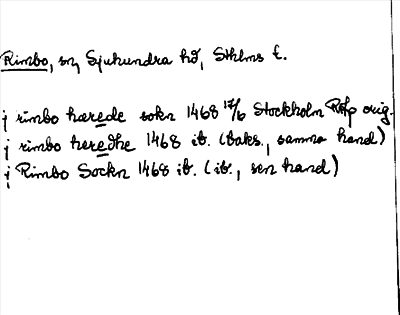 Rimbo, sn, Sjuhundra hd, Sthlms l.
j rimbo hærede sokn 1468 17/6 Stockholm RAp orig.
j rimbo heredhe 1468 ib. (baks., samma hand)
j Rimbo Sockn 1468 ib. (ib., sen hand)